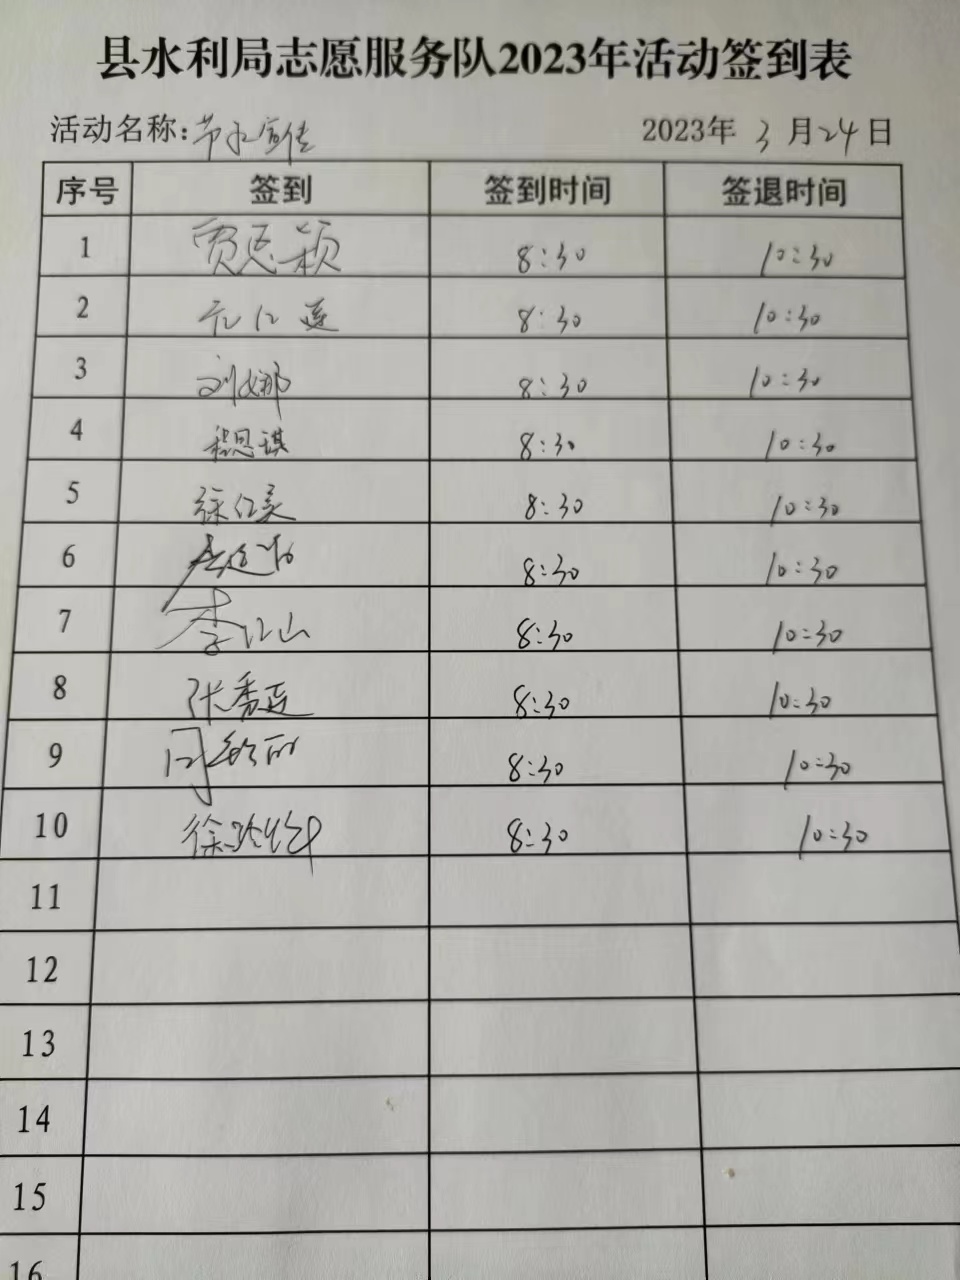 县水利局志愿服务队2023年活动签到表
活动名称:节水宣传 2023年3月24日
序号 签到 签到时间 签退时间
1 贾恩颖 8:30 10:30
2 8:30 10:30
3 刘娜 8:30 10:30
4 程思琪 8:30 10:30
5 徐仁美 8:30 10:30
6 8:30 10:30
7 李江山 8:30 10:30
8 张秀莲 8:30 10:30
9 8:30 10:30
10 徐 8:30 10:30
11
12
13
14
15
16